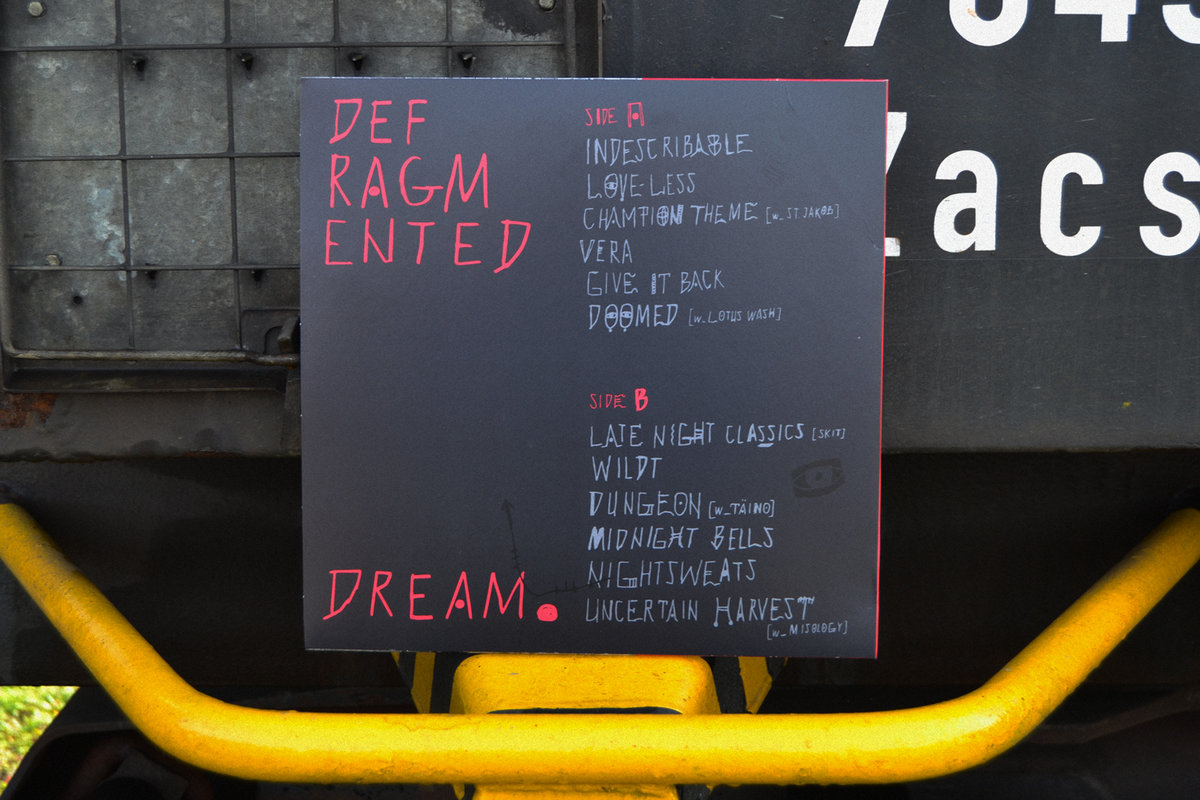 DEF
RAGM
ENTED
DREAM.
SIDE A
INDESCRIBABLE
LOVE-LESS
CHAMPION THEME [w_ST JAKOB]
VERA
GIVE IT BACK
DOOMED [w_LOTUS WASH]
SIDE B
LATE NIGHT CLASSICS [SKIT]
WILDT
DUNGEON [w_TÄINO]
MIDNIGHT BELLS
NIGHTSWEATS
UNCERTAIN HARVEST
[w_MISOLOGY]
Zacs